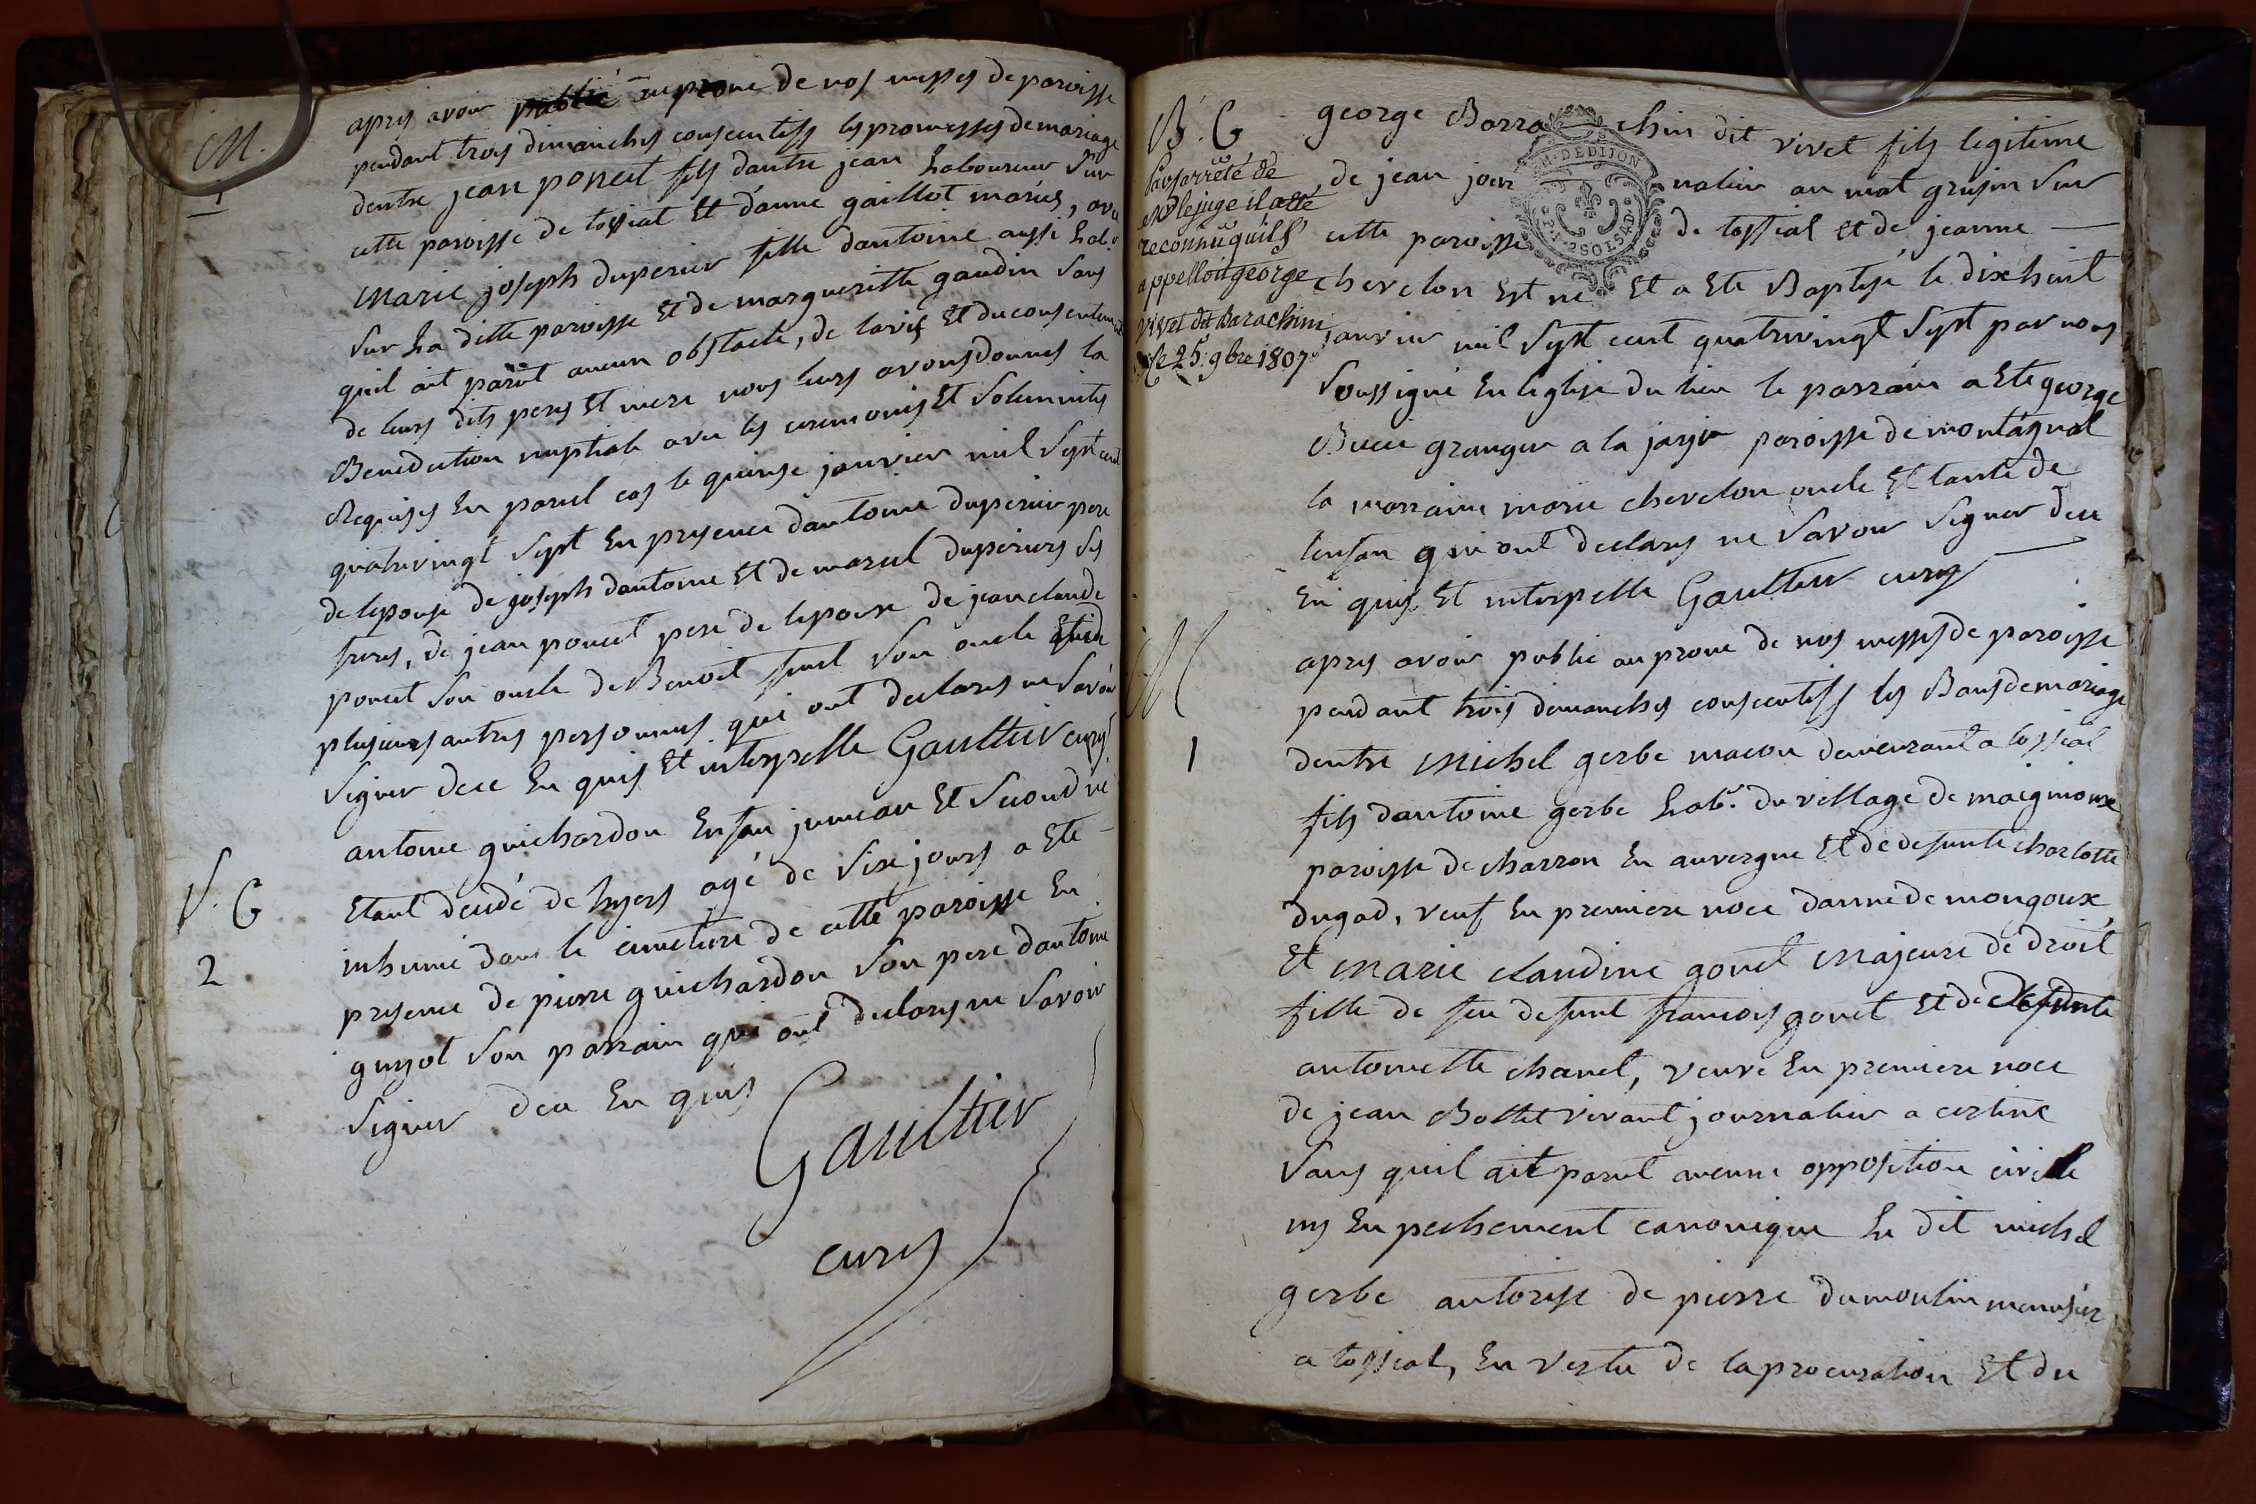 M.
1
apres avoir publié au prone de nos messes de paroisse
pendant trois dimanches consecutifs les promesses de mariage
dentre jean poncet fils dautre jean Laboureur sur
cette paroisse de tossiat Et danne gaillot mariés, avec
Marie joseph duperier fille dantoine aussi Lab.r
sur La ditte paroisse Et de margueritte gaudin sans
quil ait parut aucun obstacle, de lavis Et du consentement
de leurs dits peres Et mere nous leurs avons donnes la
Benediction nuptiale avec les ceremonies Et Solemnités
Requises En pareil cas le quinse janvier mil sept cent
quatrevingt sept En presence dantoine duperier pere
de lepouse de joseph dantoine Et de marcel duperiers ses
freres, de jean poncet pere de lepoux de jean claude
poncet son oncle de Benoit son oncle Et de
plusieurs autres personnes qui ont declares ne savoir
signer dece En quis Et interpelle Gaultier curé
V. G
2
antoine guichardon Enfan jumeau Et second né
Etant decidé de hyers agé de six jours a Ete
inhumé dans le cimetiere de cette paroisse En
presence de pierre guichardon son pere dantoine
guyot son parrain qui ont declares ne savoir
signer dece En quis
Gaultier
curé
B. G
Par arrêté de
Mr le juge il a été
reconnu quil s'
appelloit george
vivet dit Barachin
Le 25. 9bre 1807
george Barrachin dit vivet fils legitime
de jean journalier au mat grusin sur
cette paroisse de tossiat et de jeanne
chevelon Est né Et a Ete Baptisé le dix huit
janvier mil sept cent quatrevingt sept par nous
soussigné En leglise du lieu le parrain a Ete george
Buem granger a la paroisse de montagnat
la marraine marie chevelon oncle Et tante de
lenfan qui ont declares ne savoir signer dece
En quis Et interpelle Gaultier curé
H. DEDIJON
M
1
apres avoir publié au prone de nos messes de paroisse
pendant trois dimanches consecutifs les Bans de mariage
dentre Michel gerbe macon demeurant a tossiat
fils dantoine gerbe Lab.r du village de
paroisse de charron En auvergne Et de defunte charlotte
dugad, veuf En premiere noce danne de mongoux
Et Marie claudine gonet Majeure de droit
fille de feu defunt francois gonet Et de defunte
antoinette chanel, veuve En premiere noce
de jean Bollet vivant journalier a certine
sans quil ait parut aucune opposition civille
ny En pechement canonique Le dit michel
gerbe autorise de pierre dumoulin menusier
a tossiat, En vertu de la procuration Et du